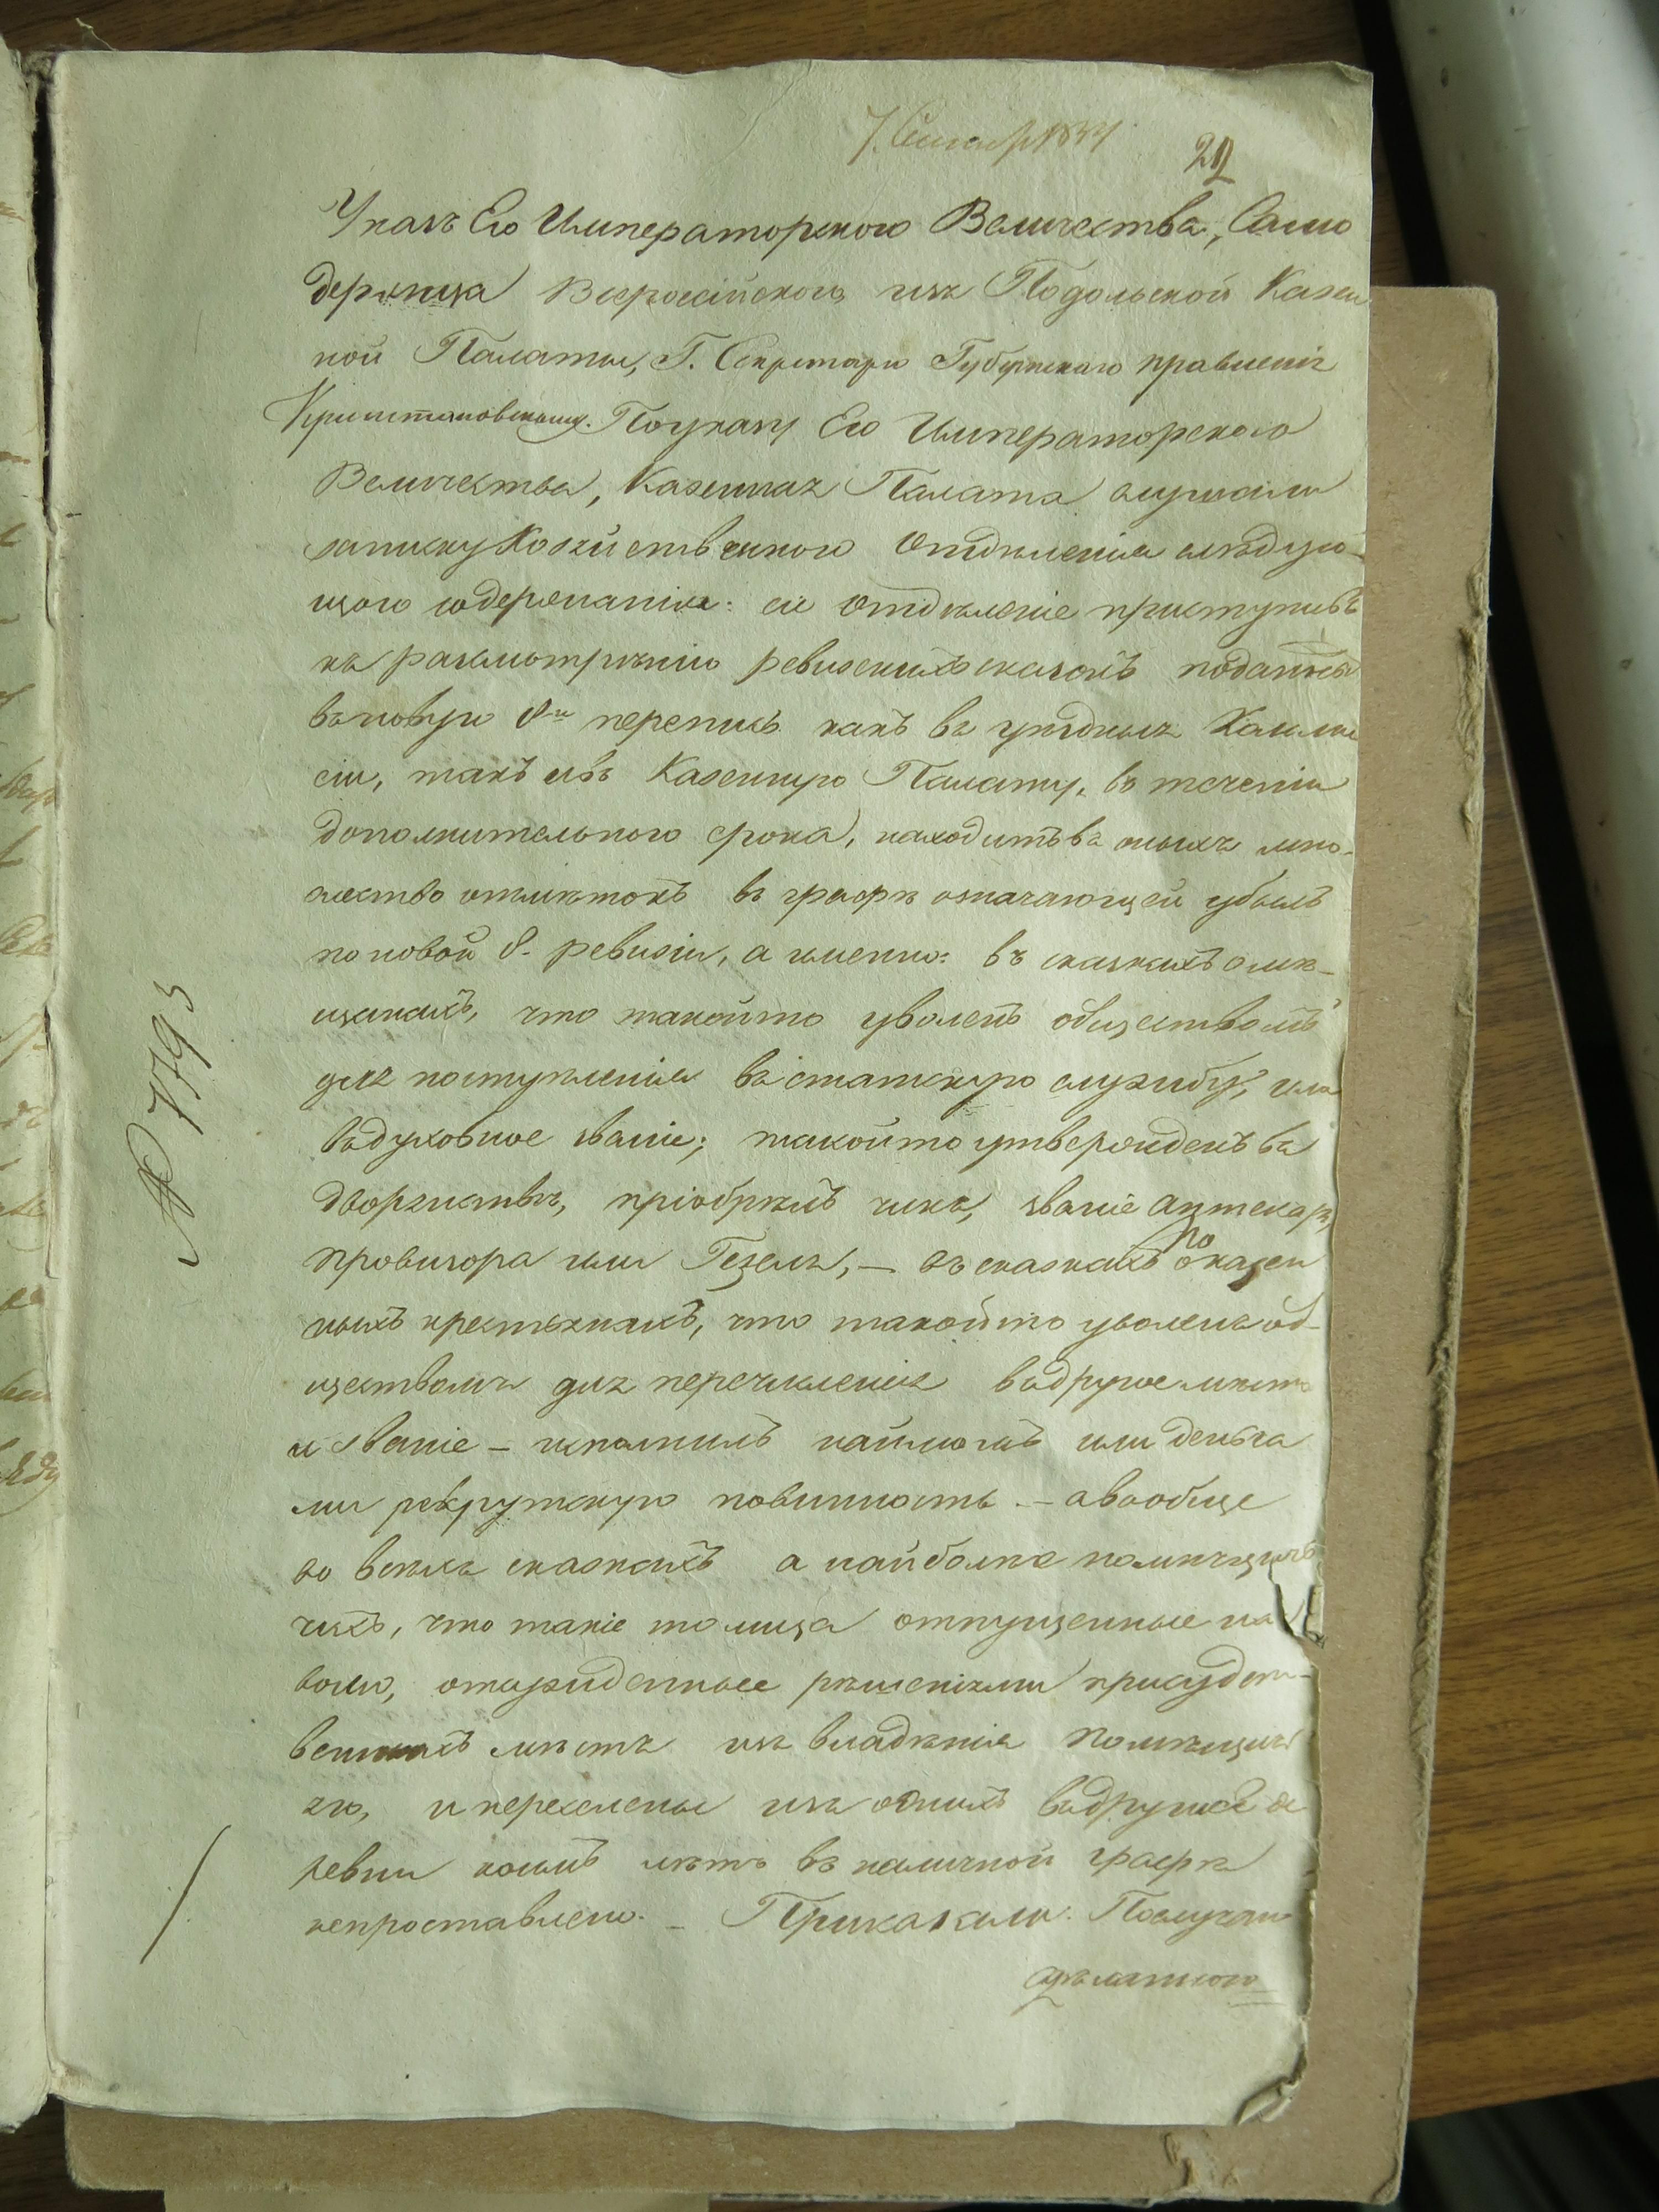 7. Сентября 1834
22
Указъ Его Императорского Величества, Само
держца Всероссійского изъ Подольской Казен
ной Палаты, Г. Секретарю Губернскаго правленія
Криштановскому. По указу Его Императорского
Величества, Казенная Палата слушали
записку Хозяйственного Отдѣленія слѣдую-
щого содержанія: сіе Отдѣленіе приступивъ
къ разсмотрѣнію ревизскихъ сказокъ поданныхъ
въ новую 8ю перепись какъ въ уѣздныя Коммис
сіи, такъ и въ Казенную Палату, въ теченіи
дополнительного срока, находитъ въ оныхъ мно-
жество отмѣтокъ въ графѣ означающей убыль
по новой 8. ревизіи, а именно: въ сказкахъ о мѣ-
щанахъ, что такойто уволенъ обществомъ
для поступленія въ статскую службу, или
въ духовное званіе; такойто утвержденъ въ
дворянствѣ, пріобрѣлъ чинъ, званіе Аптекаря,
провизора или Гезеля, — въ сказкахъ по о казен
ныхъ крестьянахъ, что такойто уволенъ об-
ществомъ для перечисленія въ другое мѣсто
и званіе — исполнилъ наймомъ или деньга
ми рекрутскую повинность — а вообще
во всѣхъ сказкахъ а найболѣе помѣщичь
ихъ, что такіе то лица отпущенные на
волю, отсужденные рѣшеніями присудст-
венныхъ мѣстъ изъ владѣнія помѣщичь
яго, и переселены изъ одныхъ въ другіе де
ревни коимъ лѣтъ въ наличной графѣ
непроставлено. — Приказали. Послучаю
сдѣланного
№ 7795